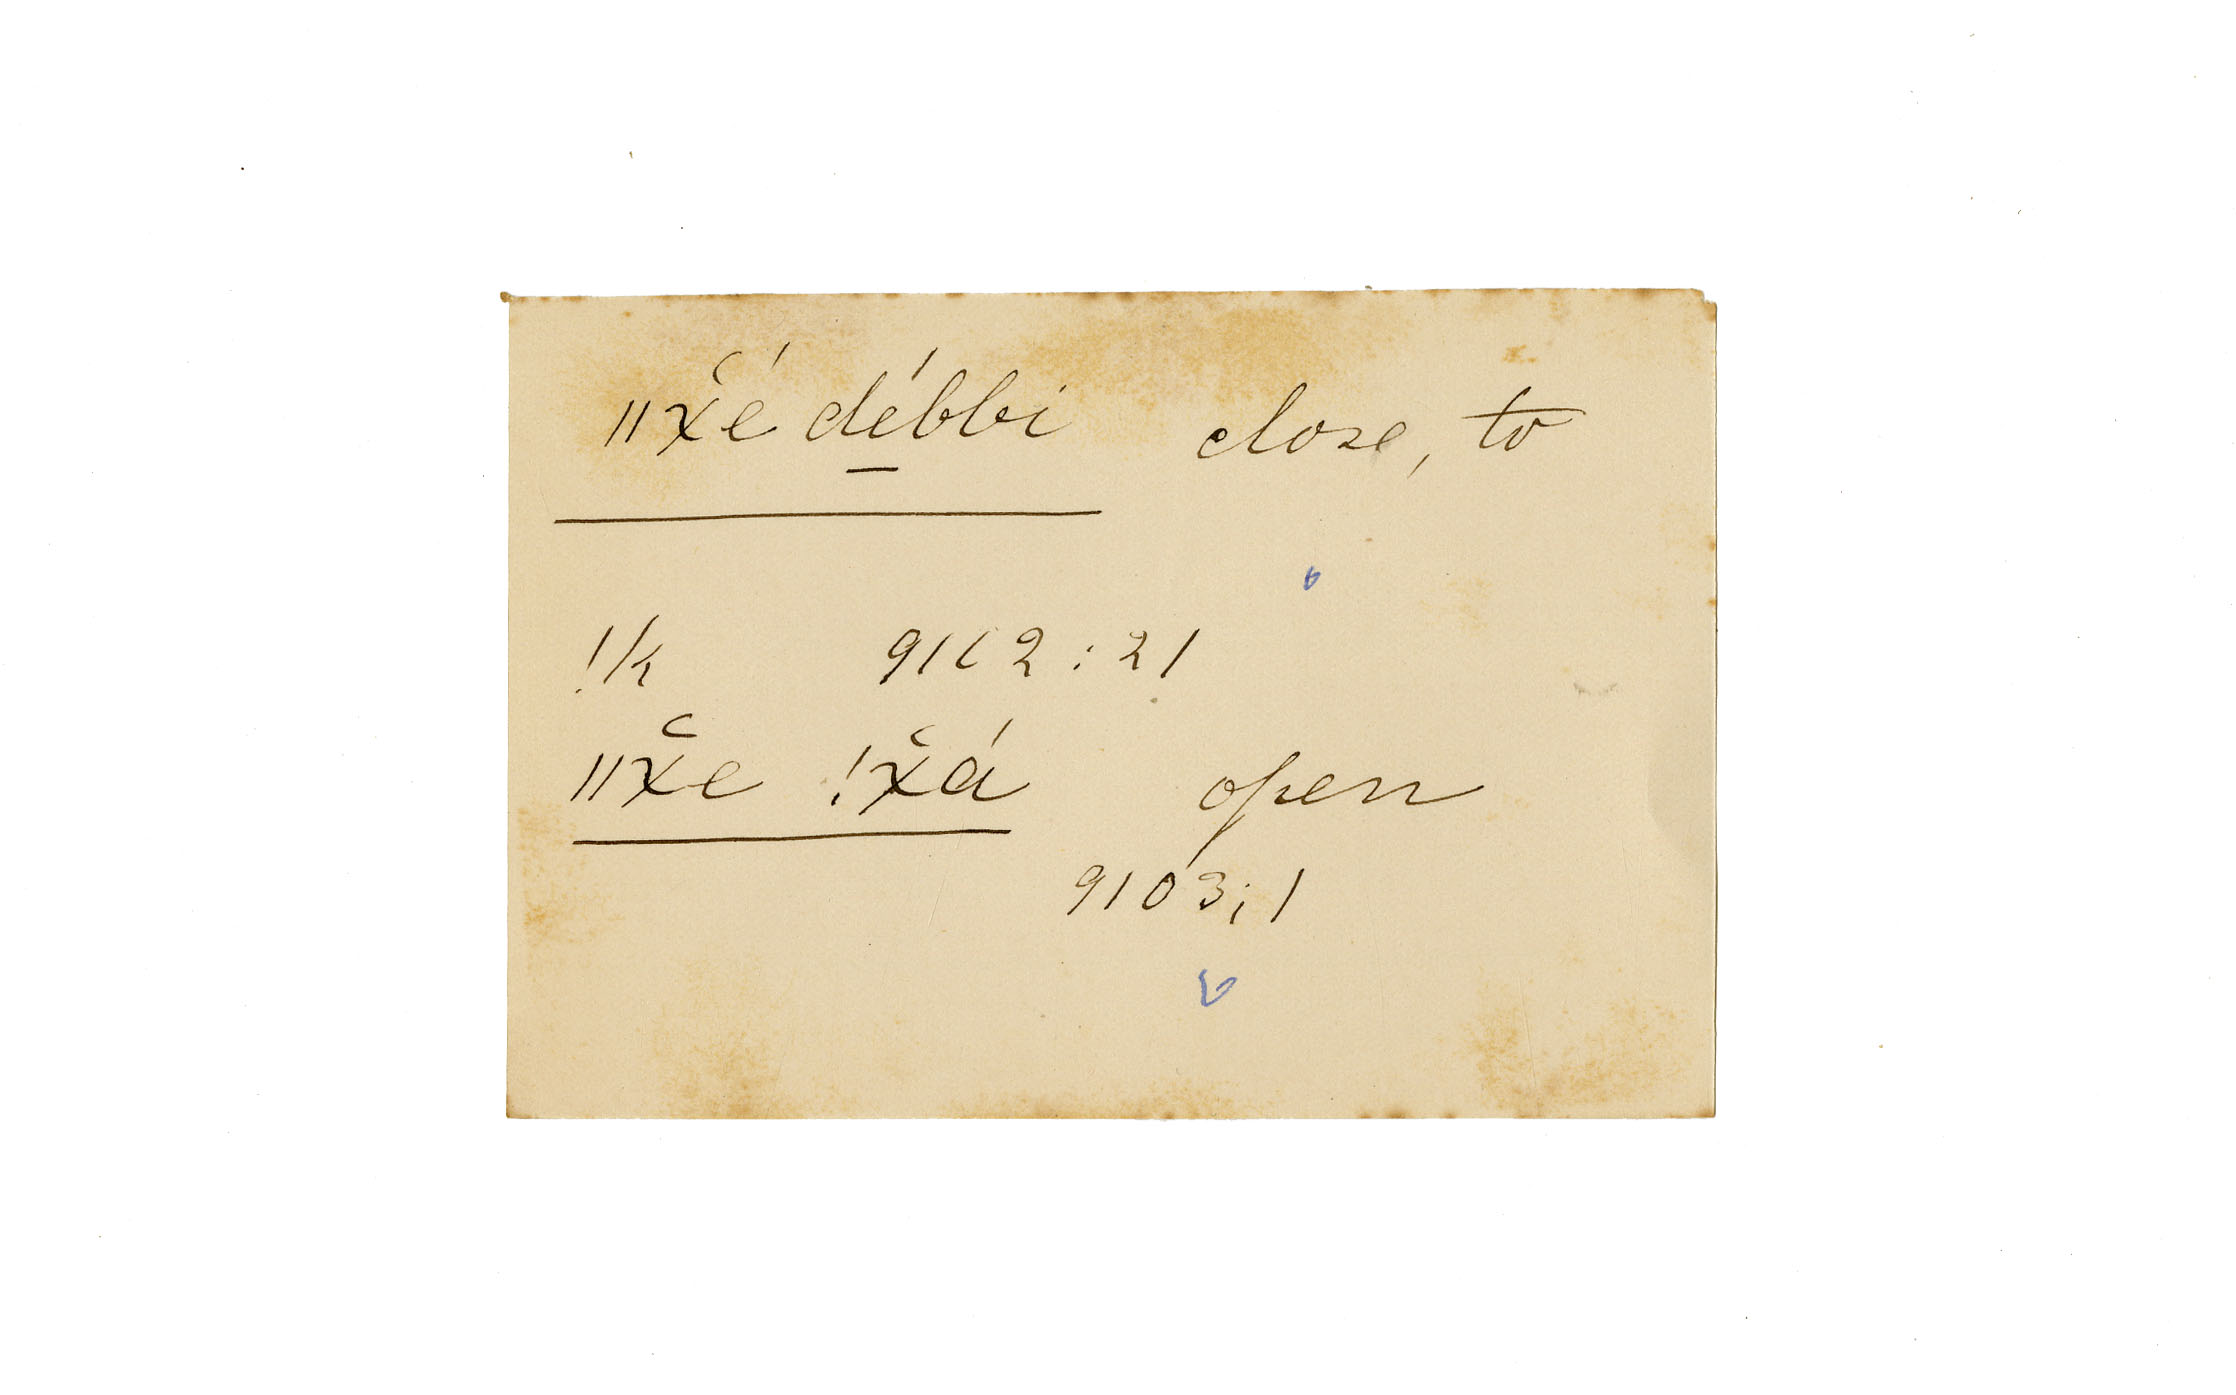 ǁχ̆é dé̱bbi close, to
!k 9112:21
ǁχ̆e !χ̆á open
9103;1